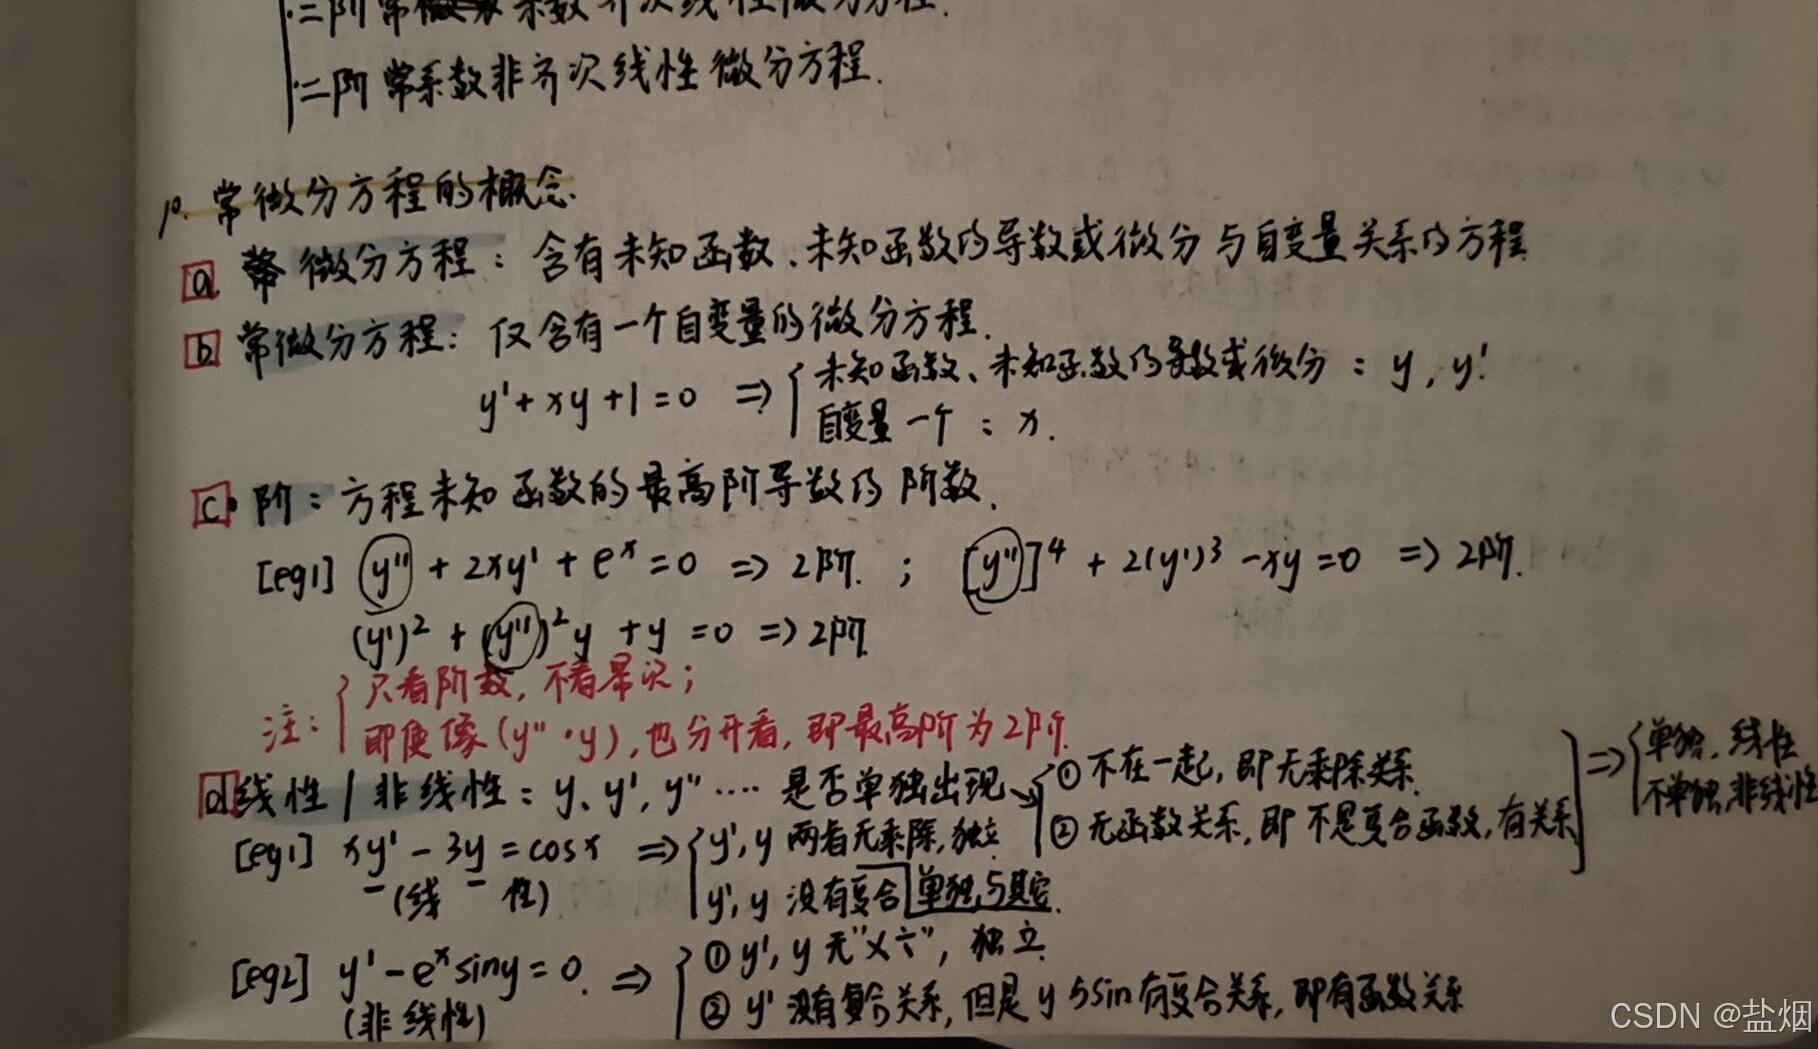 二阶常系数齐次线性微分方程.
二阶常系数非齐次线性微分方程.
1°. 常微分方程的概念.
a 微分方程: 含有未知函数、未知函数的导数或微分与自变量关系的方程
b 常微分方程: 仅含有一个自变量的微分方程.
y'+xy+1=0 => { 未知函数、未知函数的导数或微分: y, y'.
自变量一个: x.
c 阶: 方程未知函数的最高阶导数的阶数.
[eg1] y''+2xy'+e^x=0 => 2阶. ; [y'']^4+2(y')^3-xy=0 => 2阶.
(y')^2+(y'')^2y+y=0 => 2阶
注: { 只看阶数, 不看幂次;
即使像(y''·y), 也分开看, 即最高阶为2阶.
d 线性/非线性: y、y', y''.... 是否单独出现 { ① 不在一起, 即无乘除关系.
② 无函数关系, 即不是复合函数, 有关系
=> { 单独, 线性
不单独, 非线性
[eg1] xy'-3y=cosx => { y', y 两者无乘除, 独立
(线性)
y', y 没有复合 单独与其它.
[eg2] y'-e^x siny=0. => { ① y', y 无"X÷", 独立.
(非线性)
② y' 没有复合关系, 但是y与sin有复合关系, 即有函数关系
CSDN @盐烟